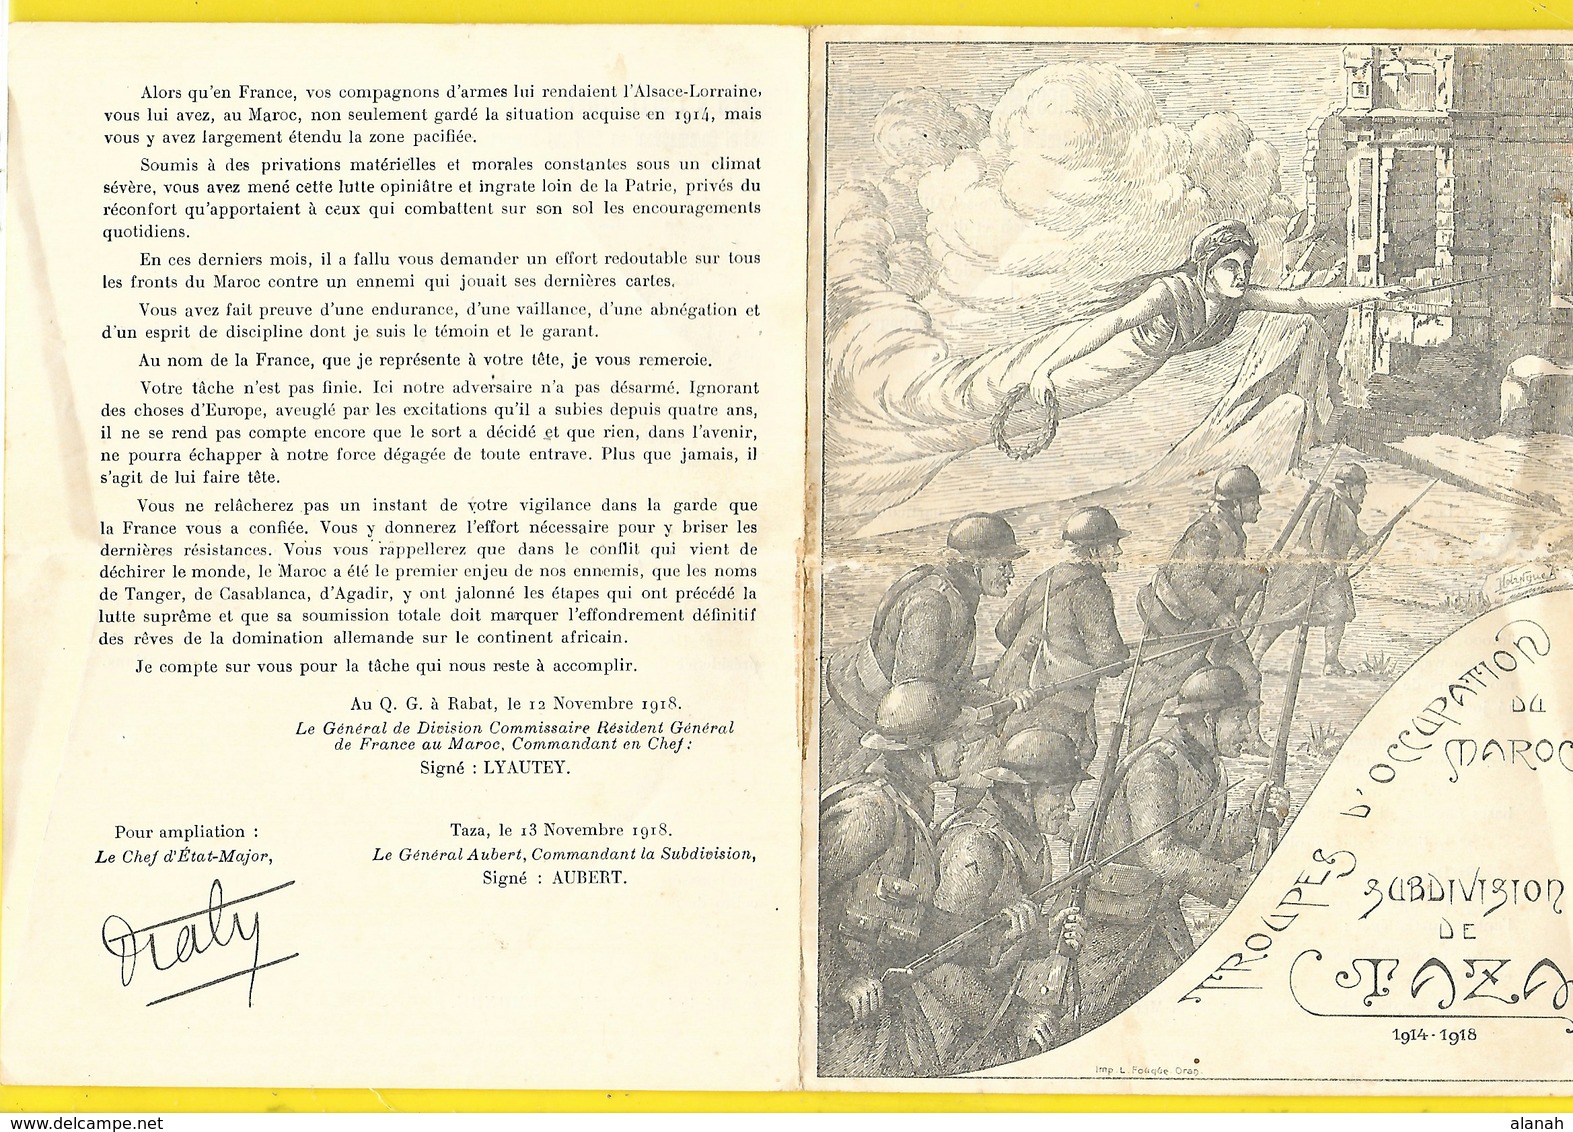 Alors qu'en France, vos compagnons d'armes lui rendaient l'Alsace-Lorraine,
vous lui avez, au Maroc, non seulement gardé la situation acquise en 1914, mais
vous y avez largement étendu la zone pacifiée.
Soumis à des privations matérielles et morales constantes sous un climat
sévère, vous avez mené cette lutte opiniâtre et ingrate loin de la Patrie, privés du
réconfort qu'apportaient à ceux qui combattent sur son sol les encouragements
quotidiens.
En ces derniers mois, il a fallu vous demander un effort redoutable sur tous
les fronts du Maroc contre un ennemi qui jouait ses dernières cartes.
Vous avez fait preuve d'une endurance, d'une vaillance, d'une abnégation et
d'un esprit de discipline dont je suis le témoin et le garant.
Au nom de la France, que je représente à votre tête, je vous remercie.
Votre tâche n'est pas finie. Ici notre adversaire n'a pas désarmé. Ignorant
des choses d'Europe, aveuglé par les excitations qu'il a subies depuis quatre ans,
il ne se rend pas compte encore que le sort a décidé et que rien, dans l'avenir,
ne pourra échapper à notre force dégagée de toute entrave. Plus que jamais, il
s'agit de lui faire tête.
Vous ne relâcherez pas un instant de votre vigilance dans la garde que
la France vous a confiée. Vous y donnerez l'effort nécessaire pour y briser les
dernières résistances. Vous vous rappellerez que dans le conflit qui vient de
déchirer le monde, le Maroc a été le premier enjeu de nos ennemis, que les noms
de Tanger, de Casablanca, d'Agadir, y ont jalonné les étapes qui ont précédé la
lutte suprême et que sa soumission totale doit marquer l'effondrement définitif
des rêves de la domination allemande sur le continent africain.
Je compte sur vous pour la tâche qui nous reste à accomplir.
Au Q. G. à Rabat, le 12 Novembre 1918.
Le Général de Division Commissaire Résident Général
de France au Maroc, Commandant en Chef :
Signé : LYAUTEY.
Pour ampliation :
Le Chef d'État-Major,
Taza, le 13 Novembre 1918.
Le Général Aubert, Commandant la Subdivision,
Signé : AUBERT.
TROUPES D'OCCUPATION
DU
MAROC
SUBDIVISION
DE
TAZA
1914-1918
Imp. L. Fouque. Oran.
alanah